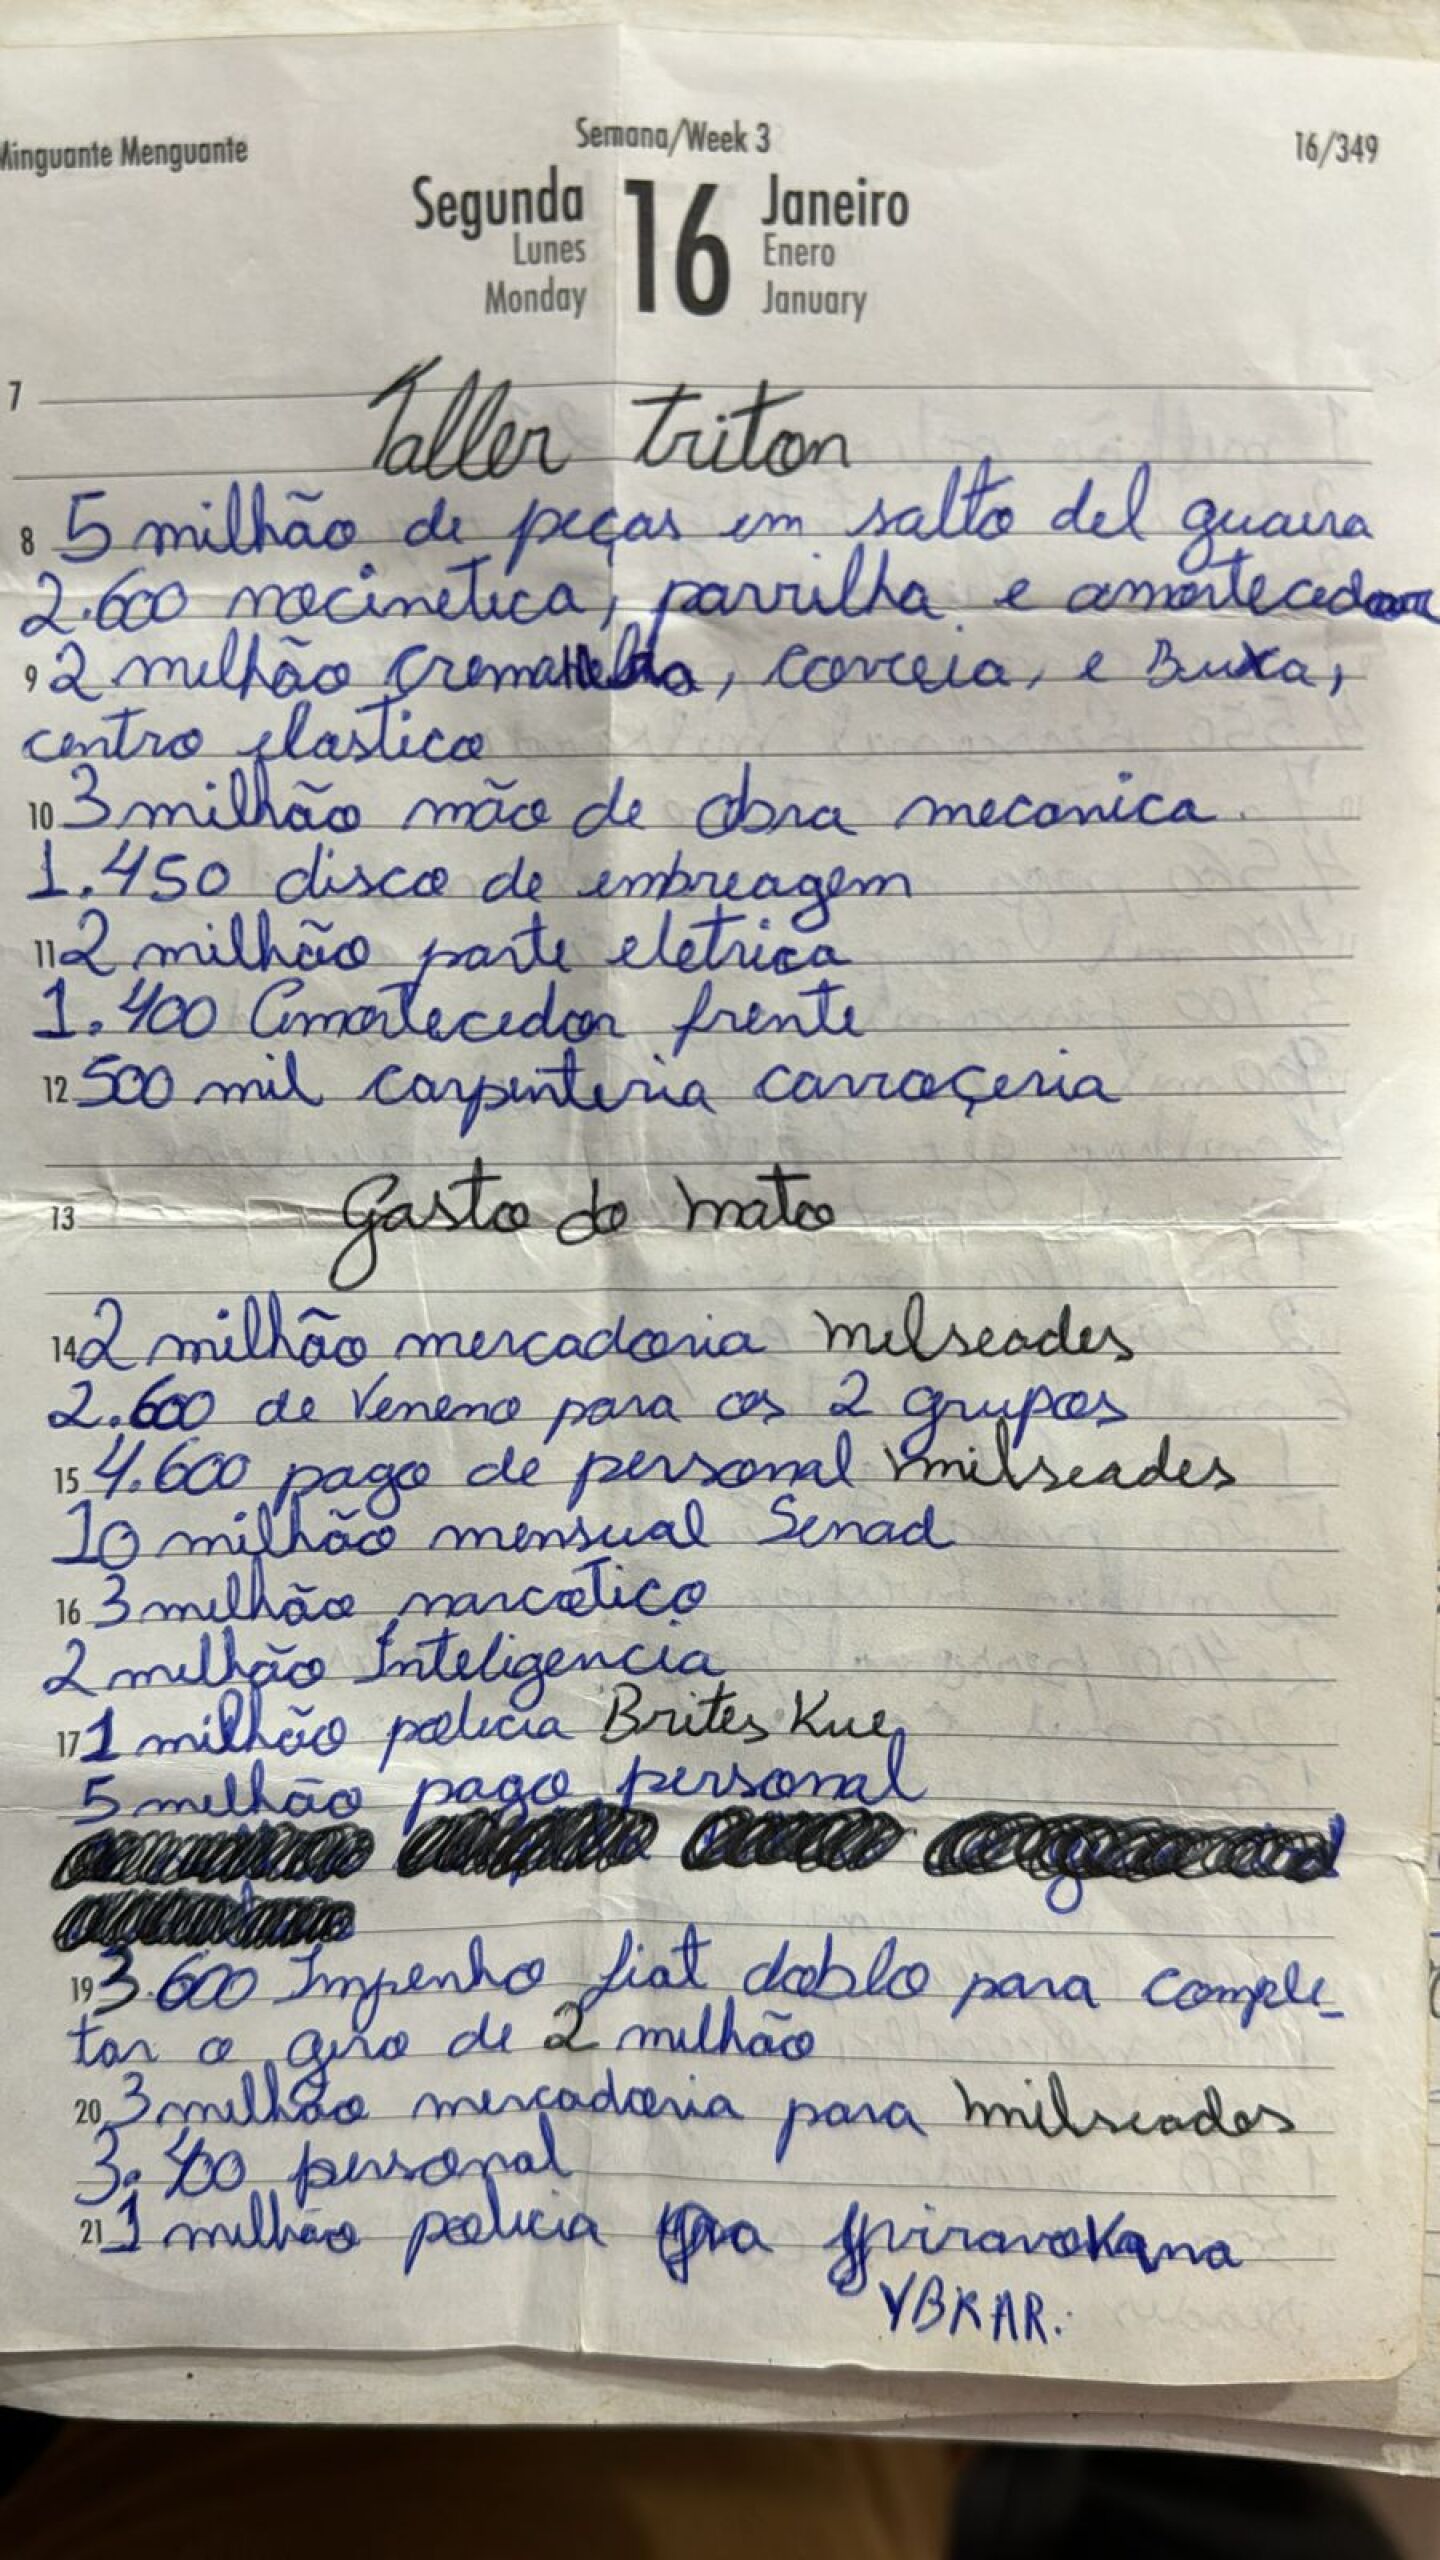 Minguante Menguante
Semana/Week 3
16/349
Segunda 16 Janeiro
Lunes Enero
Monday January
7
Taller triton
8 5 milhão de peças em salto del guaira
2.600 nocinetica, parrilha e amortecedor
9 2 milhão, correia, e Buxa,
centro elastico
10 3 milhão mão de obra mecanica.
1.450 disco de embreagem
11 2 milhão parte eletrica
1.400 Amortecedor frente
12 500 mil carpenteria carroçeria
13 Gasto do mato
14 2 milhão mercadoria milseades
2.600 de Veneno para os 2 grupos
15 4.600 pago de personal milseades
10 milhão mensual Senad
16 3 milhão narcotico
2 milhão Inteligencia
17 1 milhão policia Brites Kue
5 milhão pago personal
19 3.600 Impenho fiat doblo para comple-
tar o giro de 2 milhão
20 3 milhão mercadoria para milseades
3.400 personal
21 1 milhão policia
YBKAR.